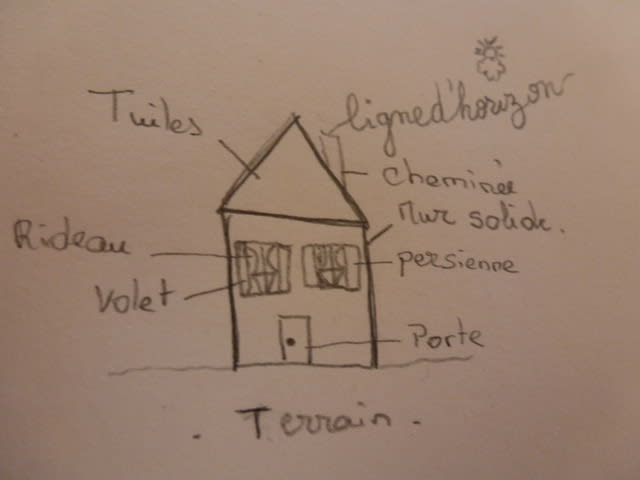 Tuiles
ligne d'horizon
cheminée
Mur solide.
Rideau
persienne
Volet
Porte
. Terrain .